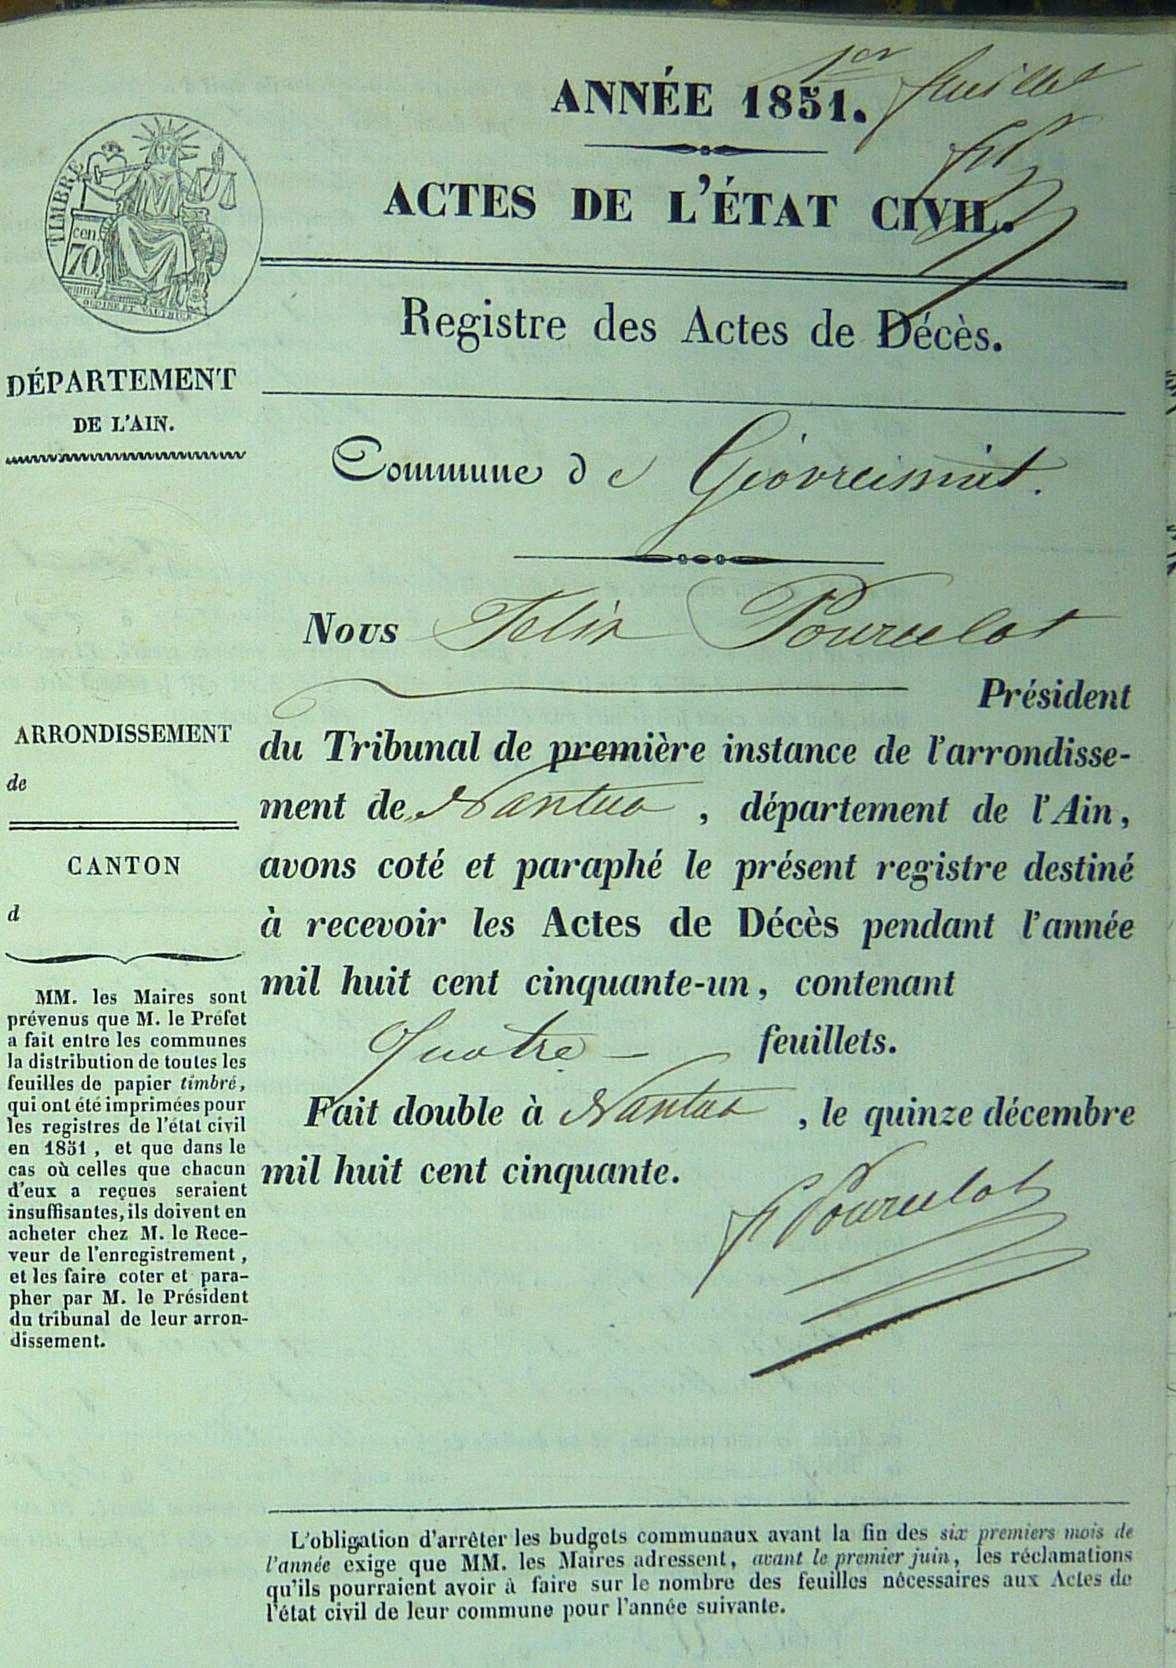 1er feuillet
ANNÉE 1851.
fP
ACTES DE L'ÉTAT CIVIL.
TIMBRE
cen.
70
Registre des Actes de Décès.
DÉPARTEMENT
DE L'AIN.
Commune de Giovreissiat.
Nous Felix Pourcelot
Président
du Tribunal de première instance de l'arrondisse-
ment de Nantua, département de l'Ain,
avons coté et paraphé le présent registre destiné
à recevoir les Actes de Décès pendant l'année
mil huit cent cinquante-un, contenant
Quatre — feuillets.
Fait double à Nantua, le quinze décembre
mil huit cent cinquante.
f Pourcelot
ARRONDISSEMENT
de
CANTON
d
MM. les Maires sont
prévenus que M. le Préfet
a fait entre les communes
la distribution de toutes les
feuilles de papier timbré,
qui ont été imprimées pour
les registres de l'état civil
en 1851, et que dans le
cas où celles que chacun
d'eux a reçues seraient
insuffisantes, ils doivent en
acheter chez M. le Rece-
veur de l'enregistrement,
et les faire coter et para-
pher par M. le Président
du tribunal de leur arron-
dissement.
L'obligation d'arrêter les budgets communaux avant la fin des six premiers mois de
l'année exige que MM. les Maires adressent, avant le premier juin, les réclamations
qu'ils pourraient avoir à faire sur le nombre des feuilles nécessaires aux Actes de
l'état civil de leur commune pour l'année suivante.